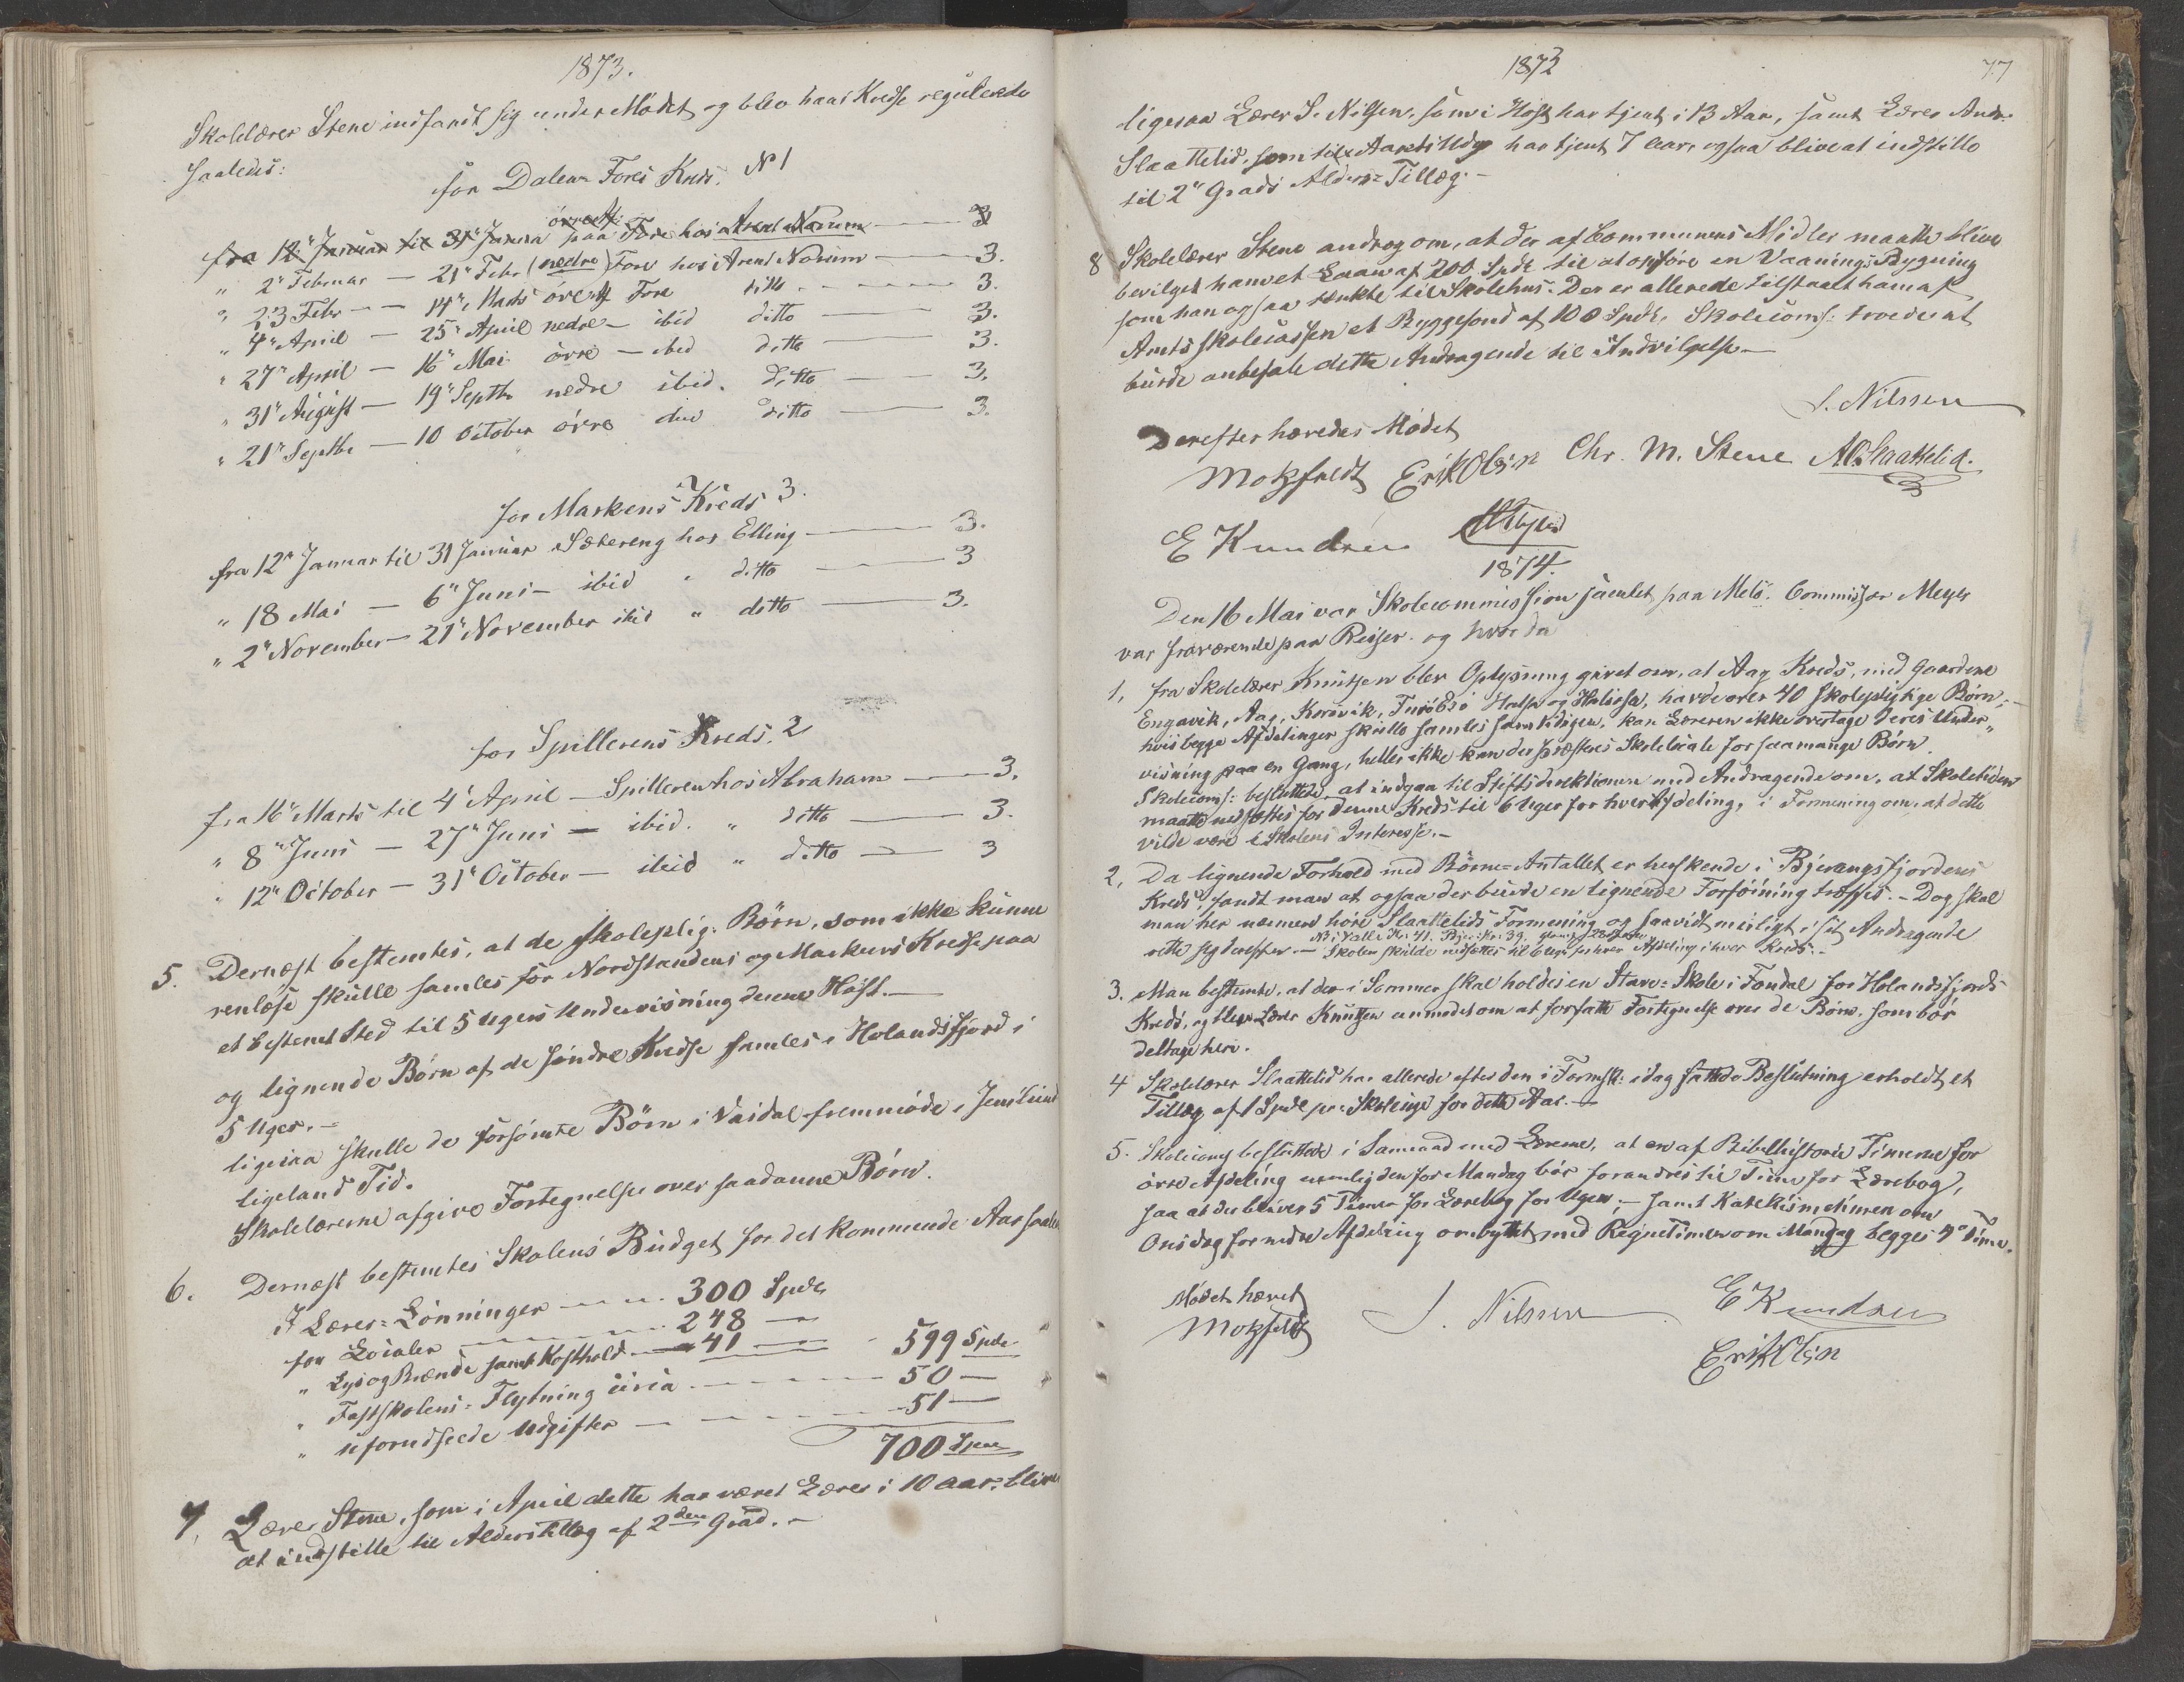 1873.
Skolelærer Stene indfandt sig under Mødet og blev hans Kredse regulerede
saaledes:
for Dalen-Fores Kreds. N 1
fra 12te Januar til 31te Januar paa Fore hos Arent Norum — 3
" 2den Februar — 21de Febr (nedre) Fore hos Arent Norum — 3.
" 23 Febr — 14de Marts övre Afd Fore ditto — 3.
" 7de April — 25de April nedre — ibid ditto — 3.
" 27de April — 16de Mai övre — ibid ditto — 3.
" 31te August — 19de Septbr nedre ibid. ditto — 3.
" 21de Septbr — 10 October övre ditto — 3.
for Markens Kreds 3.
fra 12te Januar til 31 Januar Sætereng hos Elling — 3.
" 18 Mai — 6te Juni — ibid " ditto — 3
" 2den November — 21de November ibid " ditto — 3.
for Spillerens Kreds. 2
fra 16de Marts til 4de April — Spilleren hos Abraham — 3.
" 8de Juni — 27de Juni — ibid. " ditto — 3.
" 12te October — 31te October — ibid " ditto — 3
5. Dernæst bestemtes, at de skoleplig: Börn, som ikke kunne
renlæse skulle samles for Nordstandens og Markens Kredse paa
et bestemt Sted til 5 Ugers Undervisning denne Høst.—
og lignende Börn af de søndre Kredse samles i Holandsfjord i
5 Uger.—
ligesaa skulle de forsömte Börn i Vasdal fremmöde i
ligeland Tid.
Skolelærerne afgive Fortegnelse over saadanne Börn.
6. Dernæst bestemtes Skolens Budget for det kommende Aar
Lærer-Lönninger — 300 Spdl
for Localer — 248 —
" Lys og Brænde samt Kosthold — 41 — 599 Spdl.
" Fastskolens Flytning circa — 50 —
" uforudseede Udgifter — 51 —
700 Spdl
7. Lærer Stene, som i April dette har været Lærer i 10 Aar, blive
at indstille til Alderstillæg af 2den Grad.—
1873
77
ligesaa Lærer S. Nilsen, som i Høst har tjent i 13 Aar, samt Lærer Andr.
Slaattelid, som har tjent 7 Aar, ogsaa blive at indstille
til 2den Grads Alders-Tillæg.—
8 Skolelærer Stene androg om, at der af Communens Midler maatte blive
bevilget ham et Laan af 200 Spdl til at opføre en Vaanings-Bygning
som han ogsaa tænkte til Skolehus. Der er allerede tilstaaet ham af
Amtsskolecassen et Byggefond af 100 Spdl, Skolecoms: troede at
burde anbefale dette Andragende til Indvilgelse.—
S. Nilssen
Derefter hævedes Mødet
Motzfeldt Erik Olsen Chr. M. Stene A Slaattelid.
E Knudsen
1874.
Den 16 Mai var Skolecommission samlet paa Melö. Commissær Meyer
var fraværende paa Reiser. og hvor da
1, fra Skolelærer Knutsen blev Oplysning givet om, at Aag Kreds, med Gaardene
Engavik, Aag, Korsvik, Halsa og havde over 40 skolepligtige Börn;—
hvis begge Afdelinger skulle samles samtidigen, kan Læreren ikke overtage deres Under-
visning paa en Gang, heller ikke kan der præsteres Skolelocale for saamange Börn.
Skolecoms: besluttede at indgaa til Stiftsdirektionen med Andragende om, at Skoletiden
maatte nedsættes for denne Kreds til 6 Uger for hver Afdeling, i Formening om, at dette
vilde være i Skolens Interesse.—
2, Da lignende Forhold med Börne-Antallet er herskende i Bjerangsfjordens
Kreds, fandt man at ogsaa der burde en lignende Forføining træffes.— Dog skal
man her nærmere höre Slaattelids Formening og saavidt muligt i sit Andragende
rette sig derefter.— Skolen skulde nedsættes til 6 Uger for hver Afdeling i hver Kreds.—
3. Man bestemte, at der i Sommer skal holdes en Stave-Skole i Fondal for Holandsfjords
Kreds, og blev Lærer Knutsen anmodet om at forfatte Fortegnelse over de Börn, som bör
deltage heri.
4 Skolelærer Slaattelid har allerede efter den i Formsk: idag fattede Beslutning erholdt et
Tillæg af 1 Spdl pr. Skoleuge for dette Aar.—
5. Skolecoms besluttede i Samraad med Lærerne, at en af Bibelhistorie Timerne for
övre Afdeling nemlig den for Mandag bör forandres til Time for Lærebog,
saa at der bliver 5 Timer for Lærebog for Ugen;— samt Katekismetimen om
Onsdag for nedre Afdeling ombyttet med Regnetimen om Mandag begges 4de Time.
Mödet hævet
Motzfeldt S. Nilssen E Knudsen
Erik Olsen